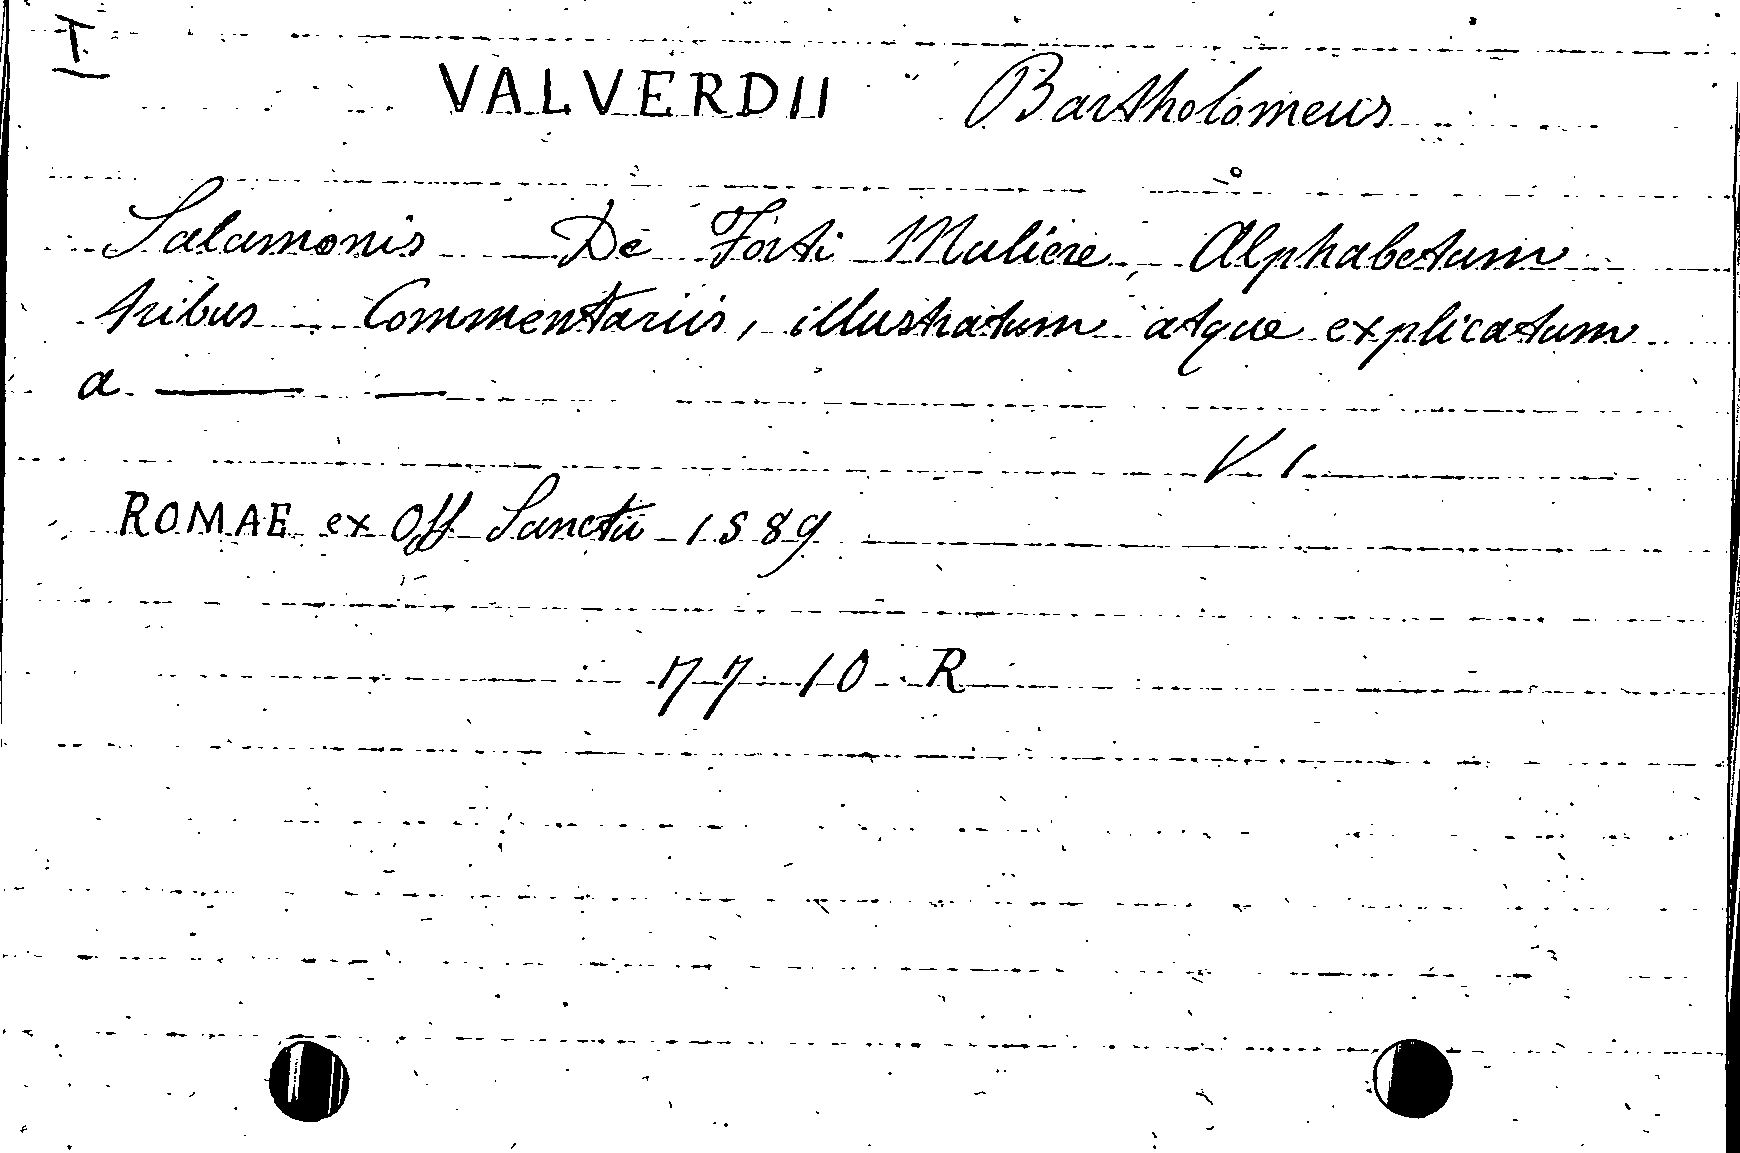 T
VALVERDII Bartholomeus
Salamonis De Forti Muliere, Alphabetum
tribus Commentariis, illustratum atque explicatum
a — —
V. 1
ROMAE ex Off Sanctii 1589
77 10 R